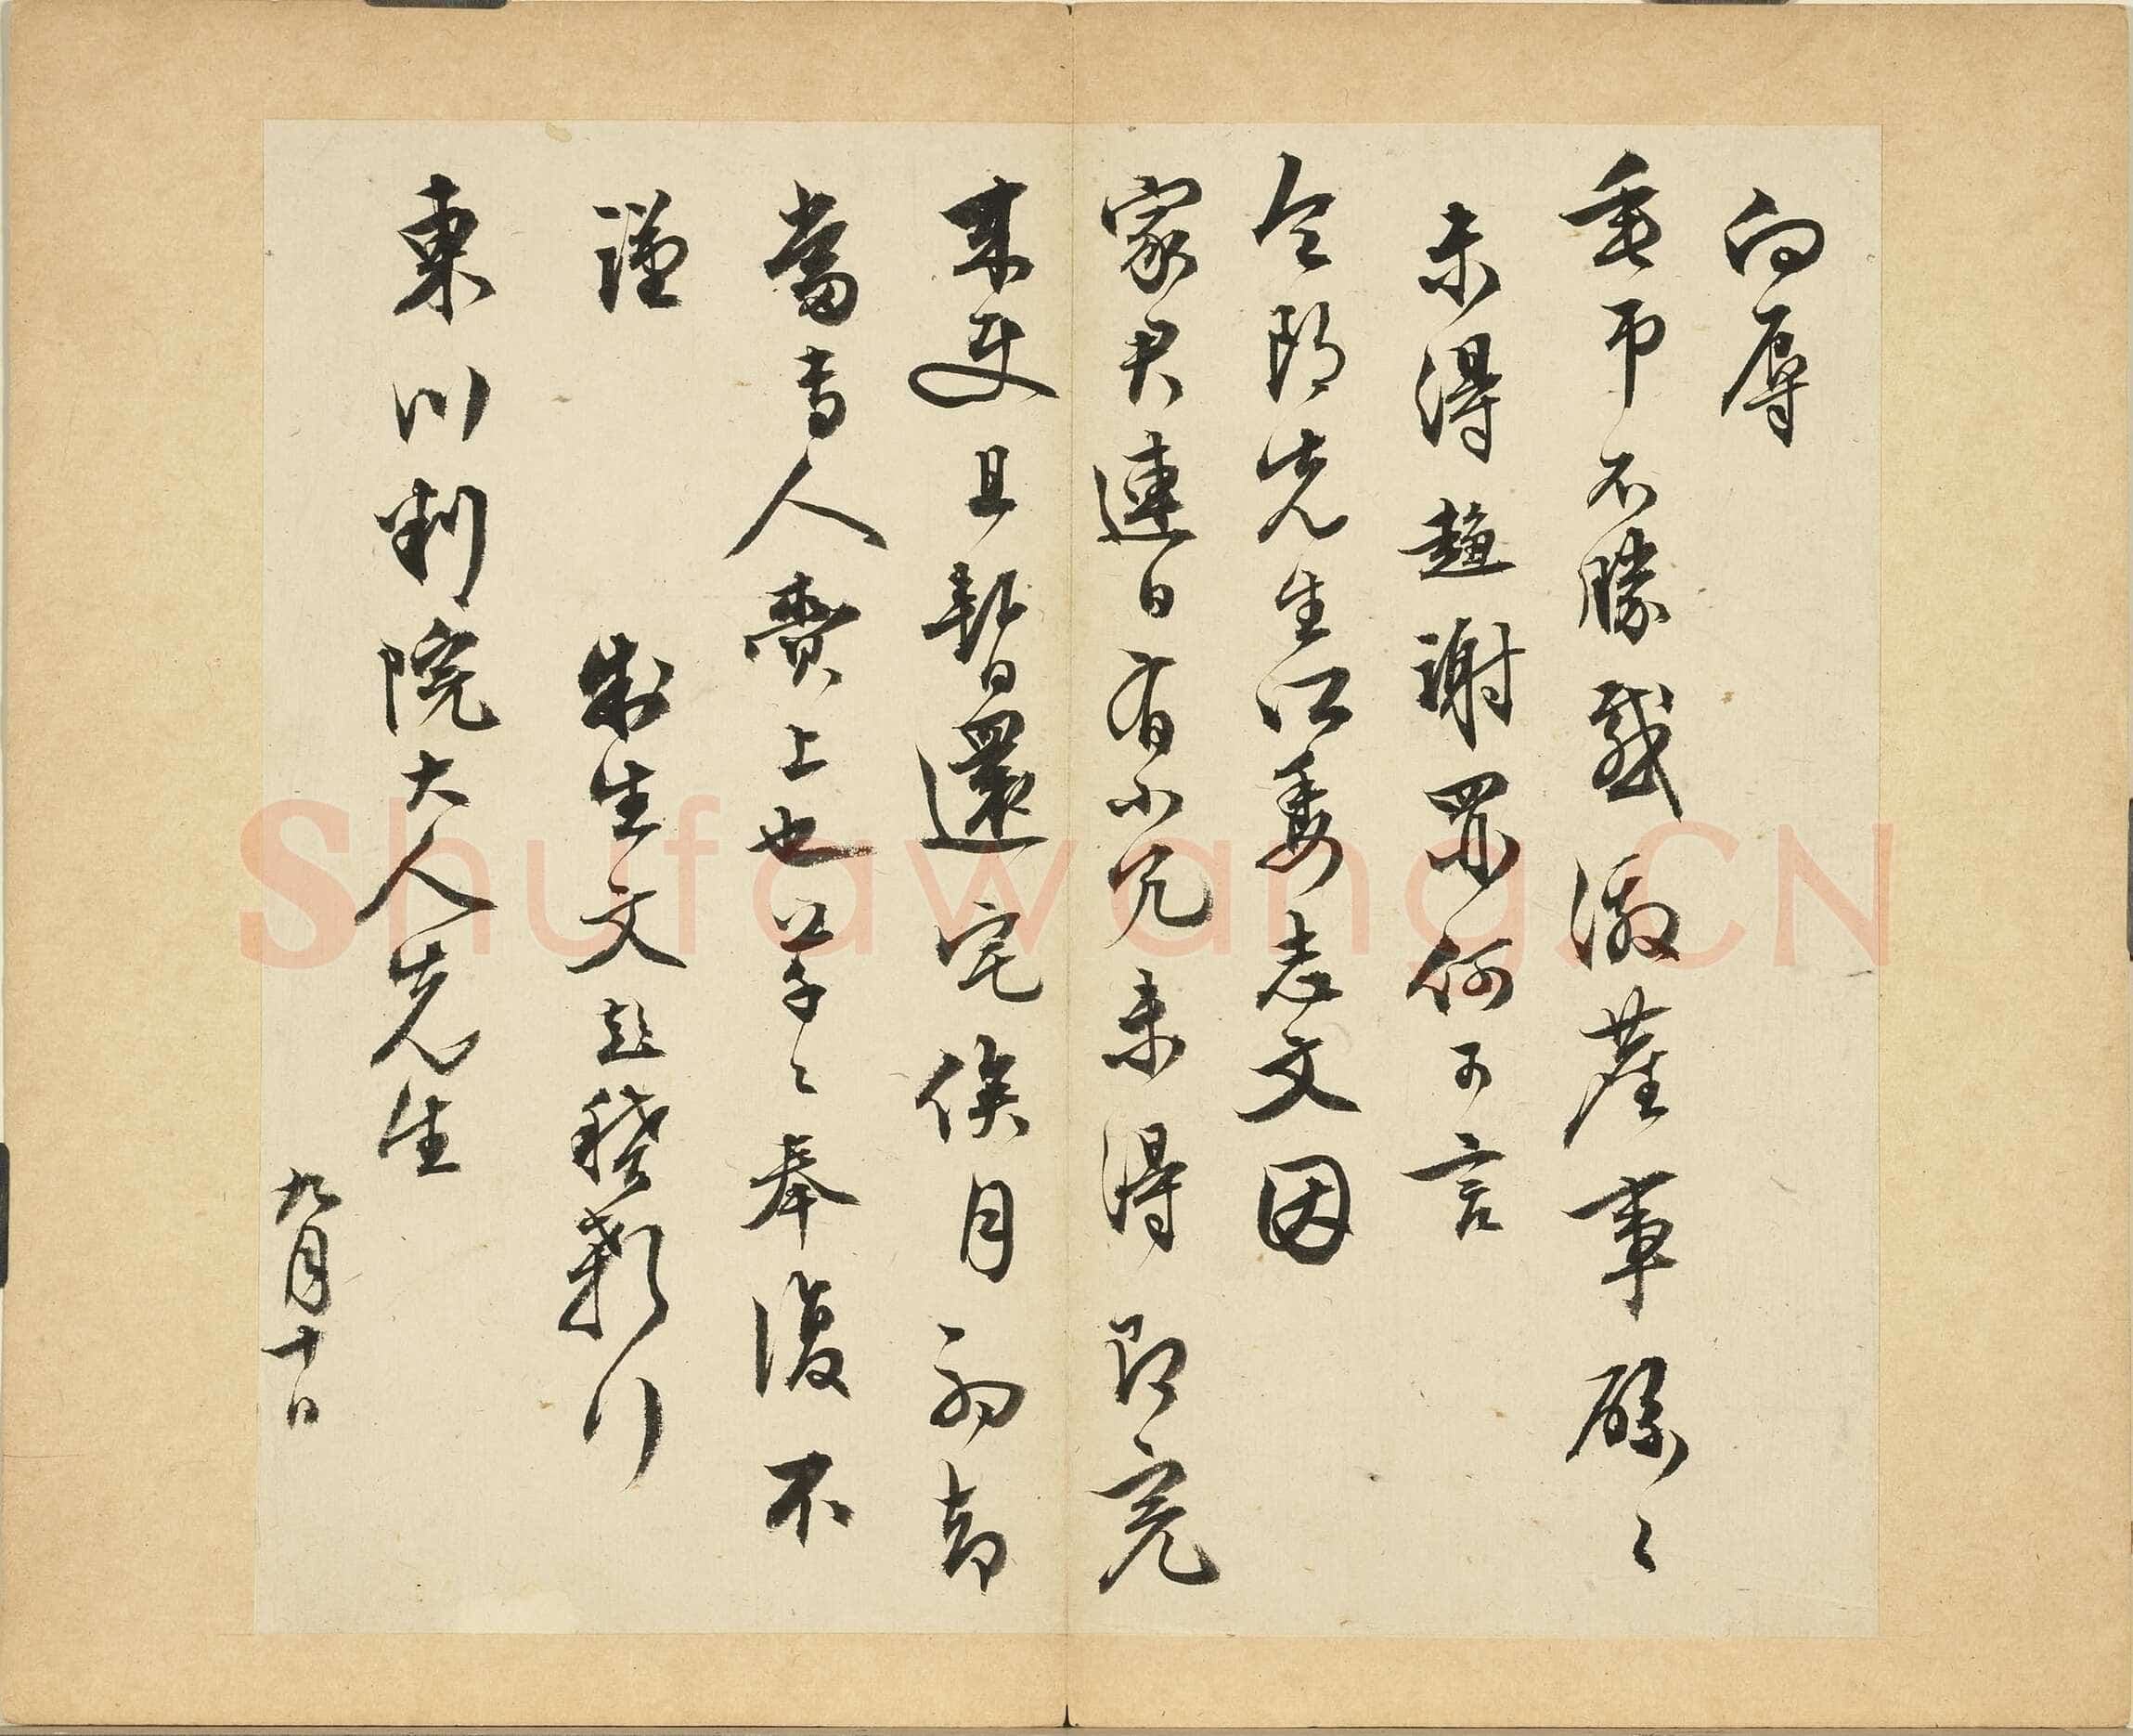 向辱
垂弔不勝感激產事
未得趨謝罪何可言
令郎先生江委志文因
家尹連日有小冗未得即完
來使且暫還宅俟月初當
當專人賫上也草草奉復不
謹 制生文彭稽顙行
東川判院大人先生
九月十日
Shufawang.CN